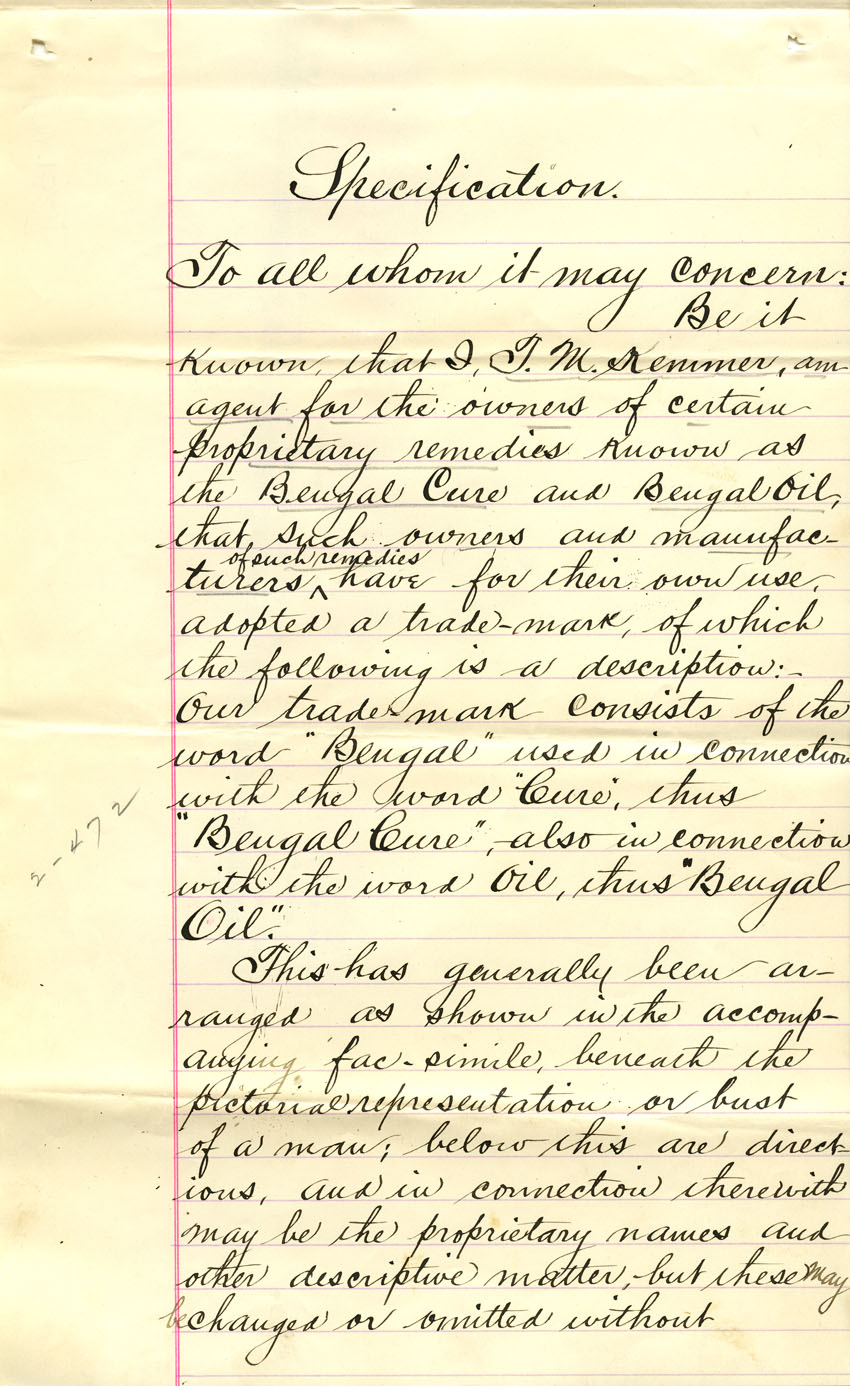 Specification.
To all whom it may concern:
Be it
known, that I, T. M. Kemmer, am
agent for the owners of certain
proprietary remedies known as
the Bengal Cure and Bengal Oil,
that such owners and manufac-
of such remedies
turers ‸ have for their own use,
adopted a trade-mark, of which
the following is a description:-
Our trade-mark consists of the
word "Bengal" used in connection
with the word "Cure", thus
"Bengal Cure", also in connection
with the word Oil, thus "Bengal
Oil".
This has generally been ar-
ranged as shown in the accomp-
anying fac-simile, beneath the
pictorial representation or bust
of a man; below this are direct-
ions, and in connection therewith
may be the proprietary names and
other descriptive matter, but these may
be changed or omitted without
2-472